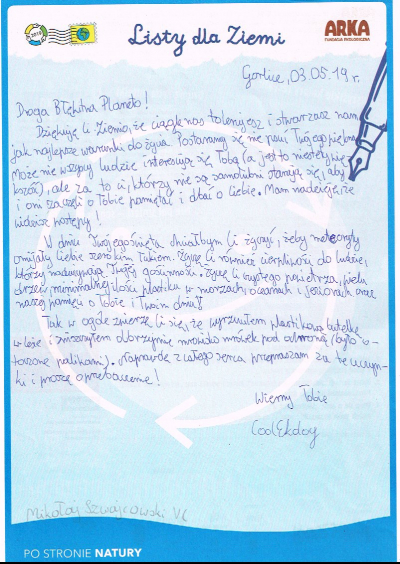 2019
Listy dla Ziemi
ARKA
FUNDACJA EKOLOGICZNA
Gorlice, 03.05.19 r.
Droga Błękitna Planeto!
Dziękuję Ci Ziemio, że ciągle nas tolerujesz i stwarzasz nam
jak najlepsze warunki do życia. Postaramy się nie psuć Twojego piękna.
Może nie wszyscy ludzie interesują się Tobą (a jest to niestety większość), ale za to ci, którzy nie są samolubni starają się, aby
i oni zaczęli o Tobie pamiętać i dbać o Ciebie. Mam nadzieję, że
widzisz postępy!
W dniu Twojego święta chciałbym Ci życzyć, żeby meteoryty
omijały Ciebie szerokim łukiem. Życzę Ci również cierpliwości do ludzi,
którzy nadużywają Twojej gościnności. Życzę Ci czystego powietrza, wielu
drzew, minimalnej ilości plastiku w morzach, oceanach i jeziorach oraz
naszej pamięci o Tobie i Twoim dniu!
Tak w ogóle zwierzę Ci się, że wyrzuciłem plastikową butelkę
w lesie i zniszczyłem olbrzymie mrowisko mrówek pod ochroną (było o-
toczone palikami). Naprawdę z całego serca przepraszam za te uczyn-
ki i proszę o przebaczenie!
Wierny Tobie
CoolEkoboy
Mikołaj Szwajcowski V c
PO STRONIE NATURY